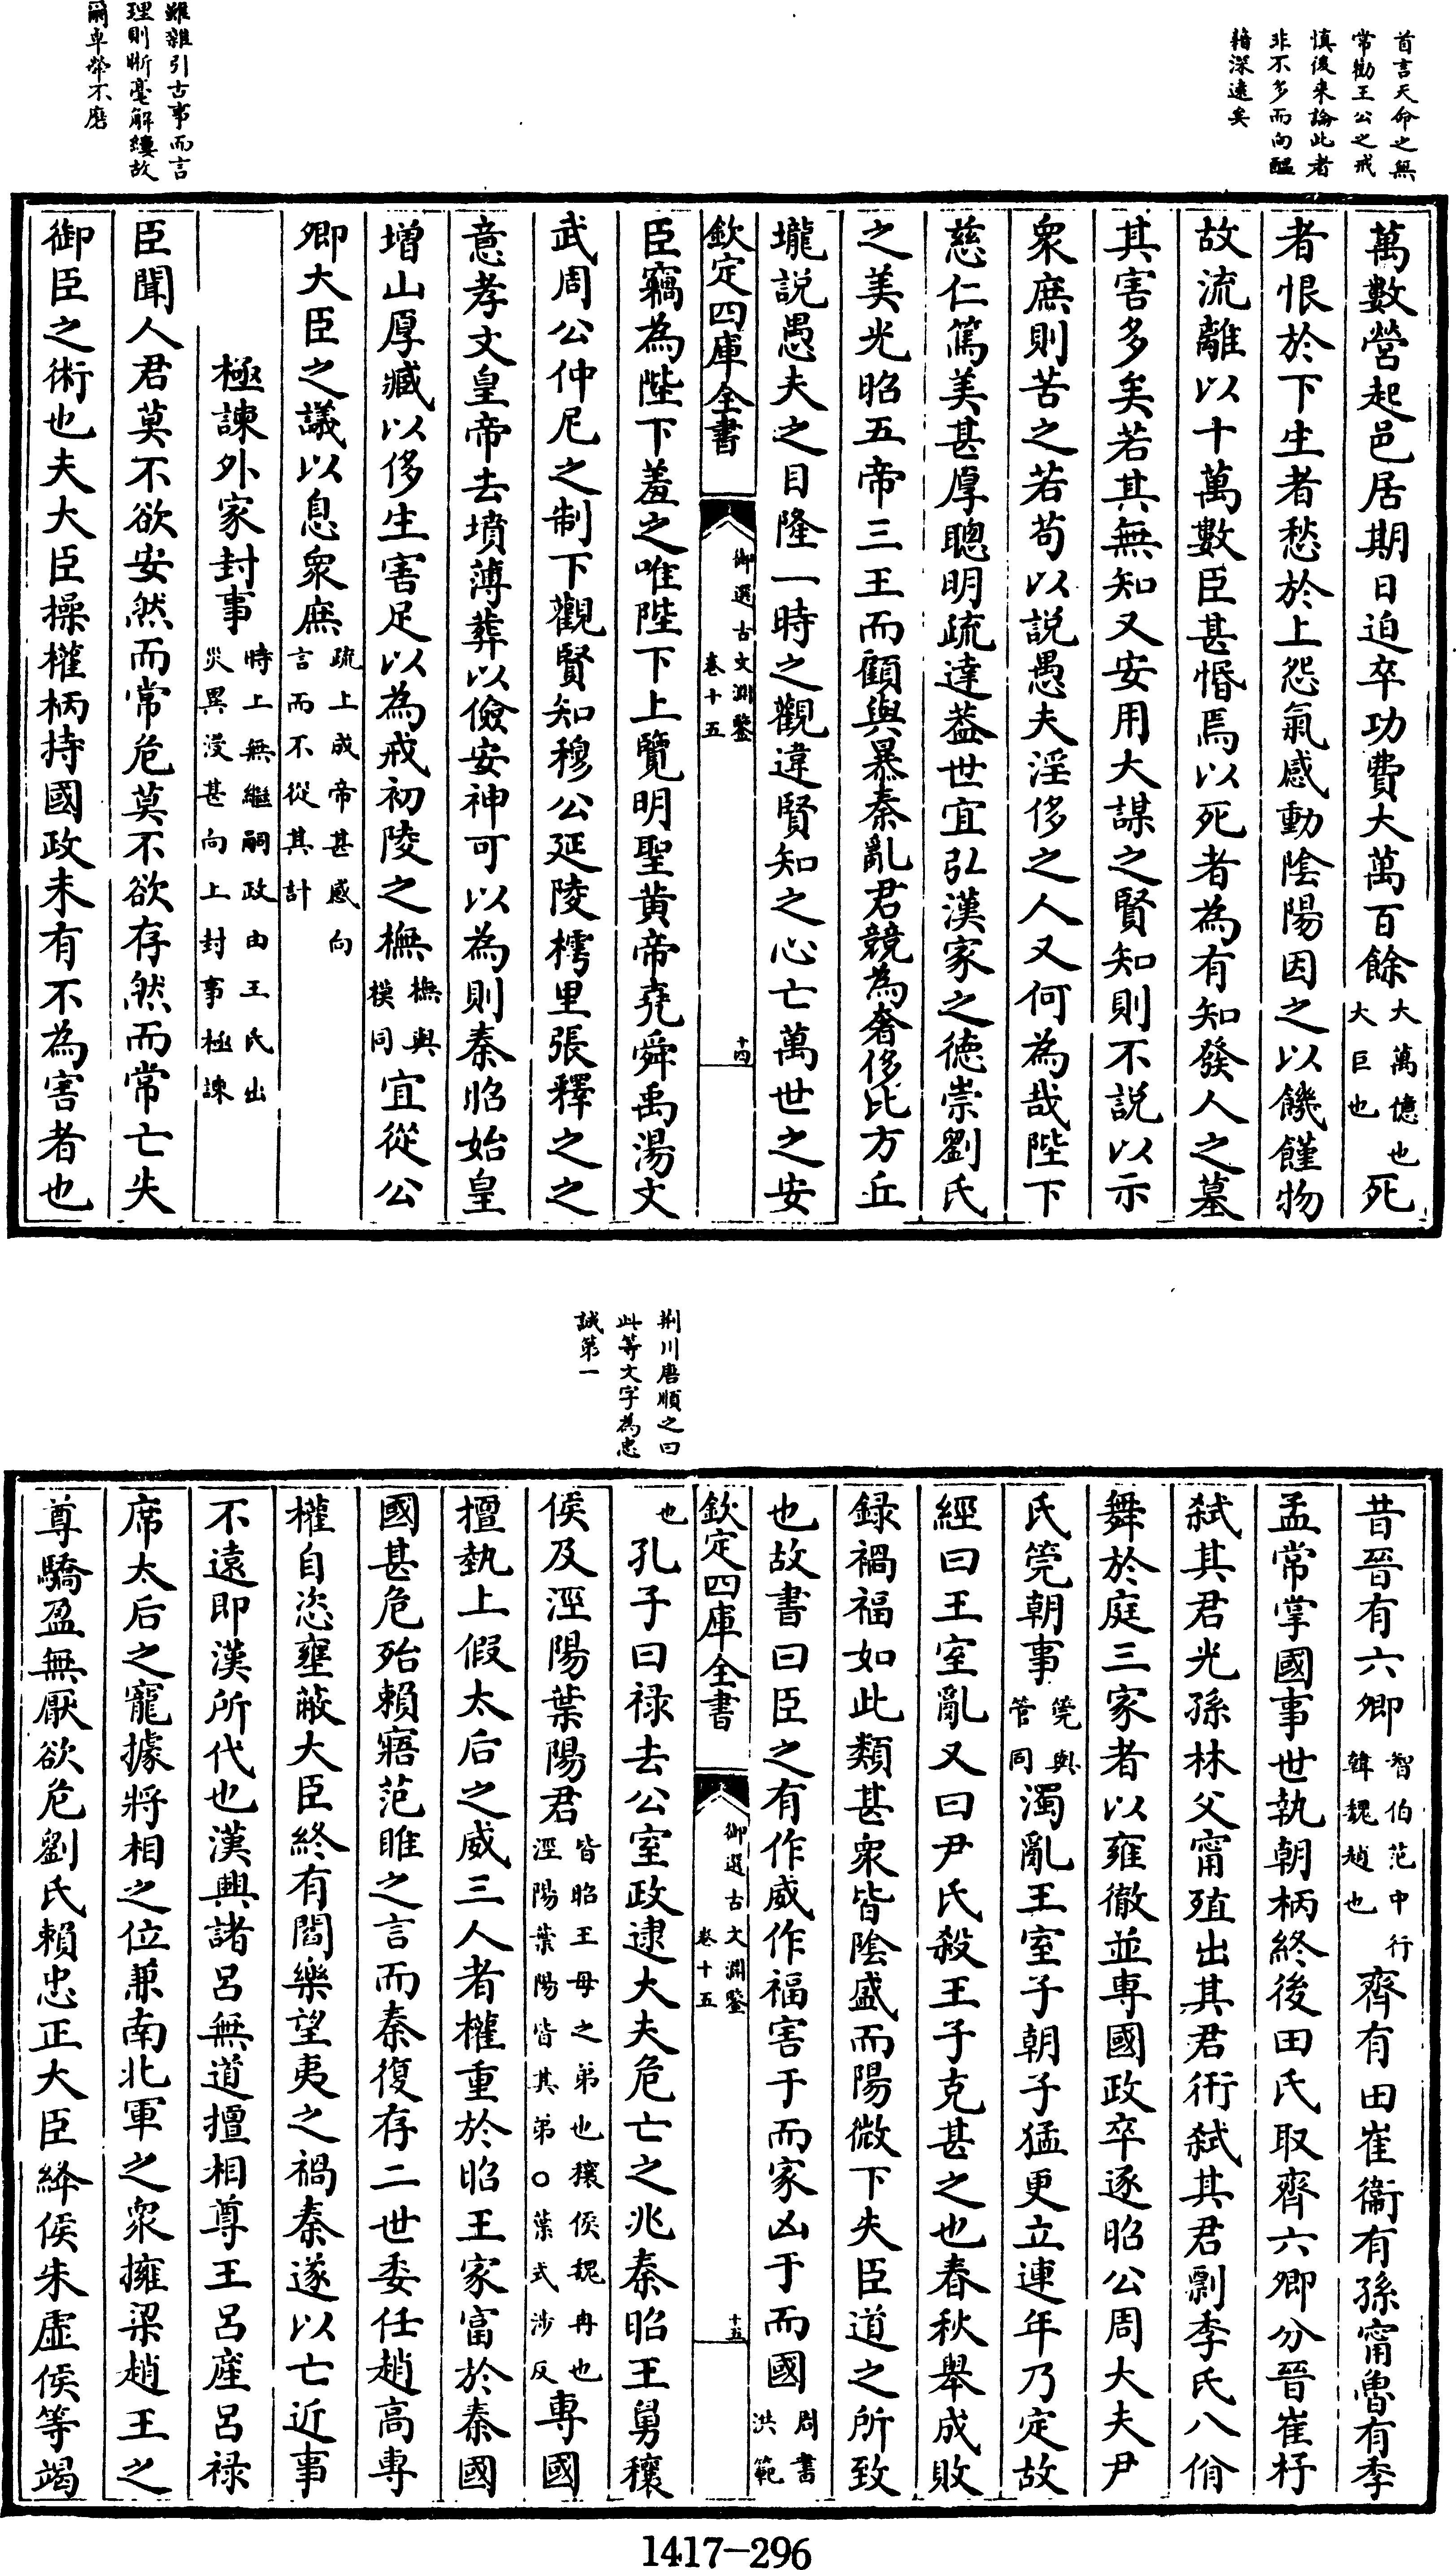 首言天命之無
常勸王公之戒
慎後來論此者
非不多而向醞
藉深遠矣
雖雜引古事而言
理則晰毫解縷故
爾卓犖不磨
萬數營起邑居期日迫卒功費大萬百餘大萬億也大巨也死
者恨於下生者愁於上怨氣感動陰陽因之以饑饉物
故流離以十萬數臣甚惛焉以死者為有知發人之墓
其害多矣若其無知又安用大謀之賢知則不說以示
衆庶則苦之若苟以說愚夫淫侈之人又何為哉陛下
慈仁篤美甚厚聰明疏達蓋世宜弘漢家之德崇劉氏
之美光昭五帝三王而顧與暴秦亂君競為奢侈比方丘
壠說愚夫之目隆一時之觀違賢知之心亡萬世之安
欽定四庫全書 御選古文淵鑒 卷十五 十四
臣竊為陛下羞之唯陛下上覽明聖黄帝堯舜禹湯文
武周公仲尼之制下觀賢知穆公延陵樗里張釋之之
意孝文皇帝去墳薄葬以儉安神可以為則秦昭始皇
增山厚臧以侈生害足以為戒初陵之橅橅與模同宜從公
卿大臣之議以息衆庶疏上成帝甚感向言而不從其計
極諫外家封事時上無繼嗣政由王氏出災異浸甚向上封事極諫
臣聞人君莫不欲安然而常危莫不欲存然而常亡失
御臣之術也夫大臣操權柄持國政未有不為害者也
荆川唐順之曰
此等文字為忠
誠第一
昔晉有六卿智伯范中行韓魏趙也齊有田崔衞有孫甯魯有季
孟常掌國事世執朝柄終後田氏取齊六卿分晉崔杼
弑其君光孫林父甯殖出其君衎弑其君剽季氏八佾
舞於庭三家者以雍徹並専國政卒逐昭公周大夫尹
氏筦朝事筦與管同濁亂王室子朝子猛更立連年乃定故
經曰王室亂又曰尹氏殺王子克甚之也春秋舉成敗
録禍福如此類甚衆皆陰盛而陽微下失臣道之所致
也故書曰臣之有作威作福害于而家凶于而國周書洪範
欽定四庫全書 御選古文淵鑒 卷十五 十五
也孔子曰禄去公室政逮大夫危亡之兆秦昭王舅穰
侯及涇陽葉陽君皆昭王母之弟也穰侯魏冉也涇陽葉陽皆其弟○葉式涉反専國
擅埶上假太后之威三人者權重於昭王家富於秦國
國甚危殆賴寤范睢之言而秦復存二世委任趙高専
權自恣壅蔽大臣終有閻樂望夷之禍秦遂以亡近事
不遠即漢所代也漢興諸呂無道擅相尊王呂産呂禄
席太后之寵據將相之位兼南北軍之衆擁梁趙王之
尊驕盈無厭欲危劉氏賴忠正大臣絳侯朱虚侯等竭
1417-296